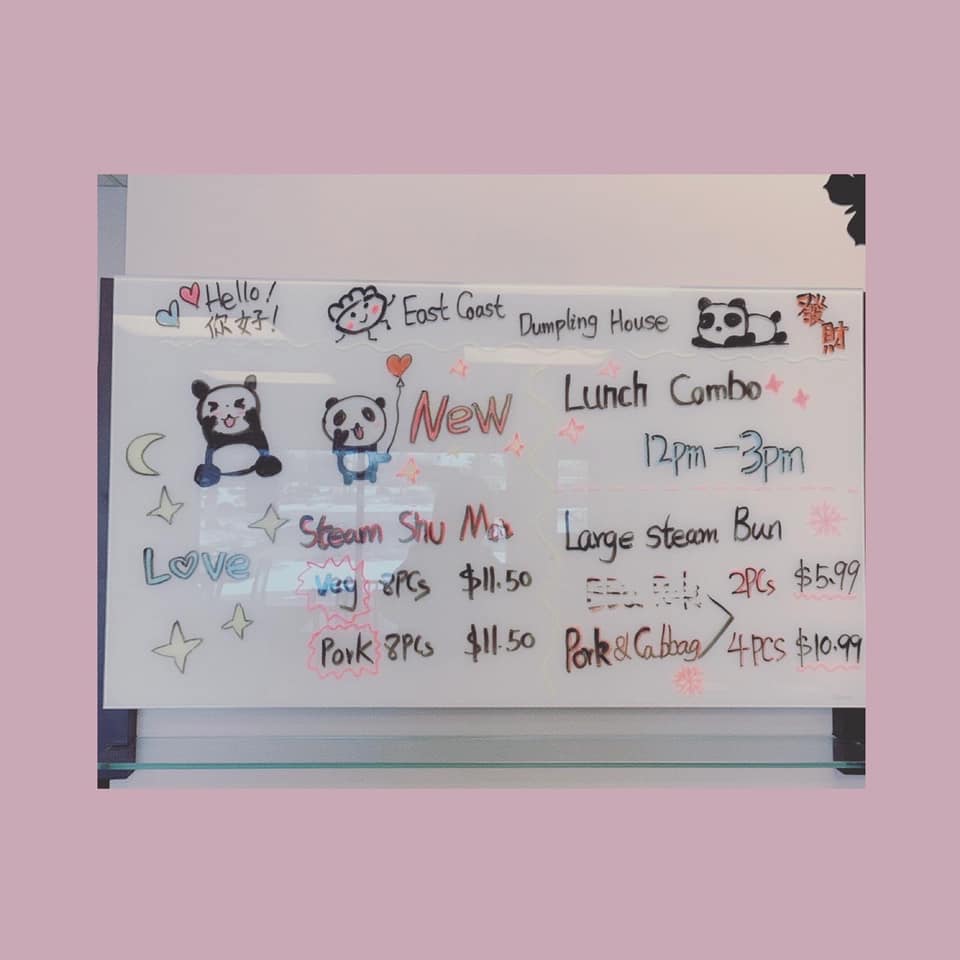 Hello!
你好!
East Coast
Dumpling House
發
財
New
Steam Shu Mai
Veg 8PCs $11.50
Pork 8PCs $11.50
Love
Lunch Combo
12pm-3pm
Large steam Bun
2PCs $5.99
Pork & Cabbag 4PCS $10.99